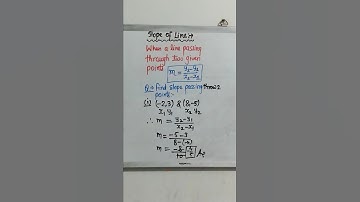 Slope of Line:→
When a line passing
through two given
points
m = y₂-y₁ / x₂-x₁
Q.→ Find slope pazing throw 2
points:-
(-2,3) & (8,-5)
x₁ y₁ x₂ y₂
∴ m = y₂-y₁ / x₂-x₁
m = -5-3 / 8-(-2)
m = -8 / 10